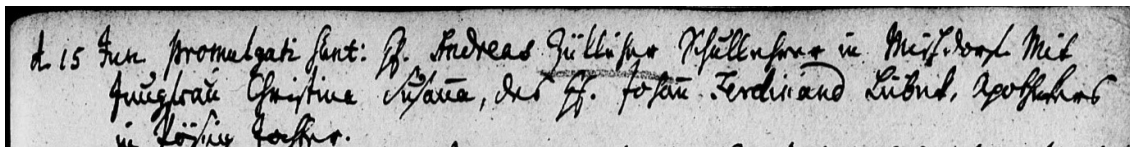 d. 15 Jun promulgati sunt: H. Andreas Züllicher Schullehrer in Mischdorf Mit
Jungfrau Christina Susana, des H. Johan Ferdinand Lübek, Apothekers
in Tochter.